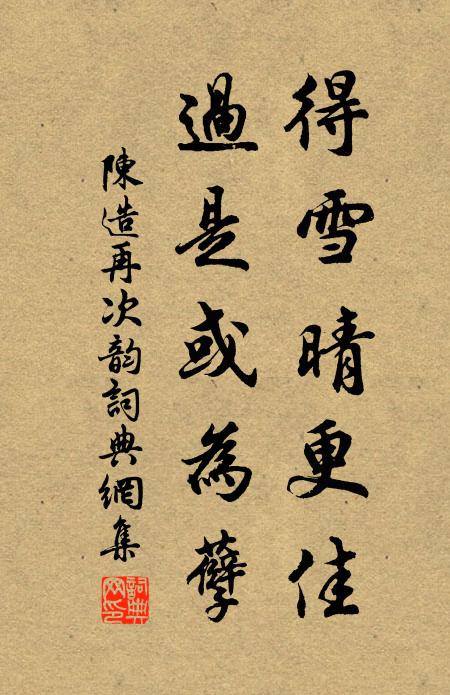 得雪晴更佳
過是或為孽
陳造再次韵詞典網集
詞典网印